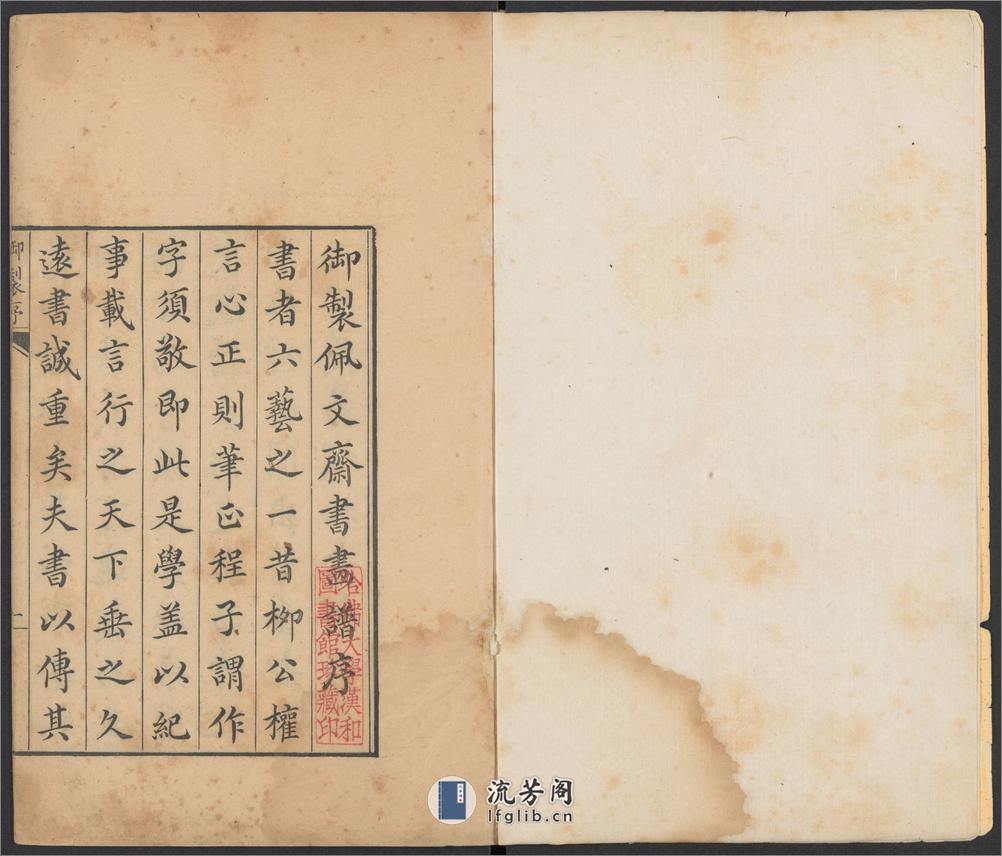 御製佩文齋書畫譜序
書者六藝之一昔柳公權
言心正則筆正程子謂作
字須敬即此是學蓋以紀
事載言行之天下垂之久
遠書誠重矣夫書以傳其
御製序
一
哈佛大學漢和
圖書館珍藏印
流芳阁
lfglib.cn